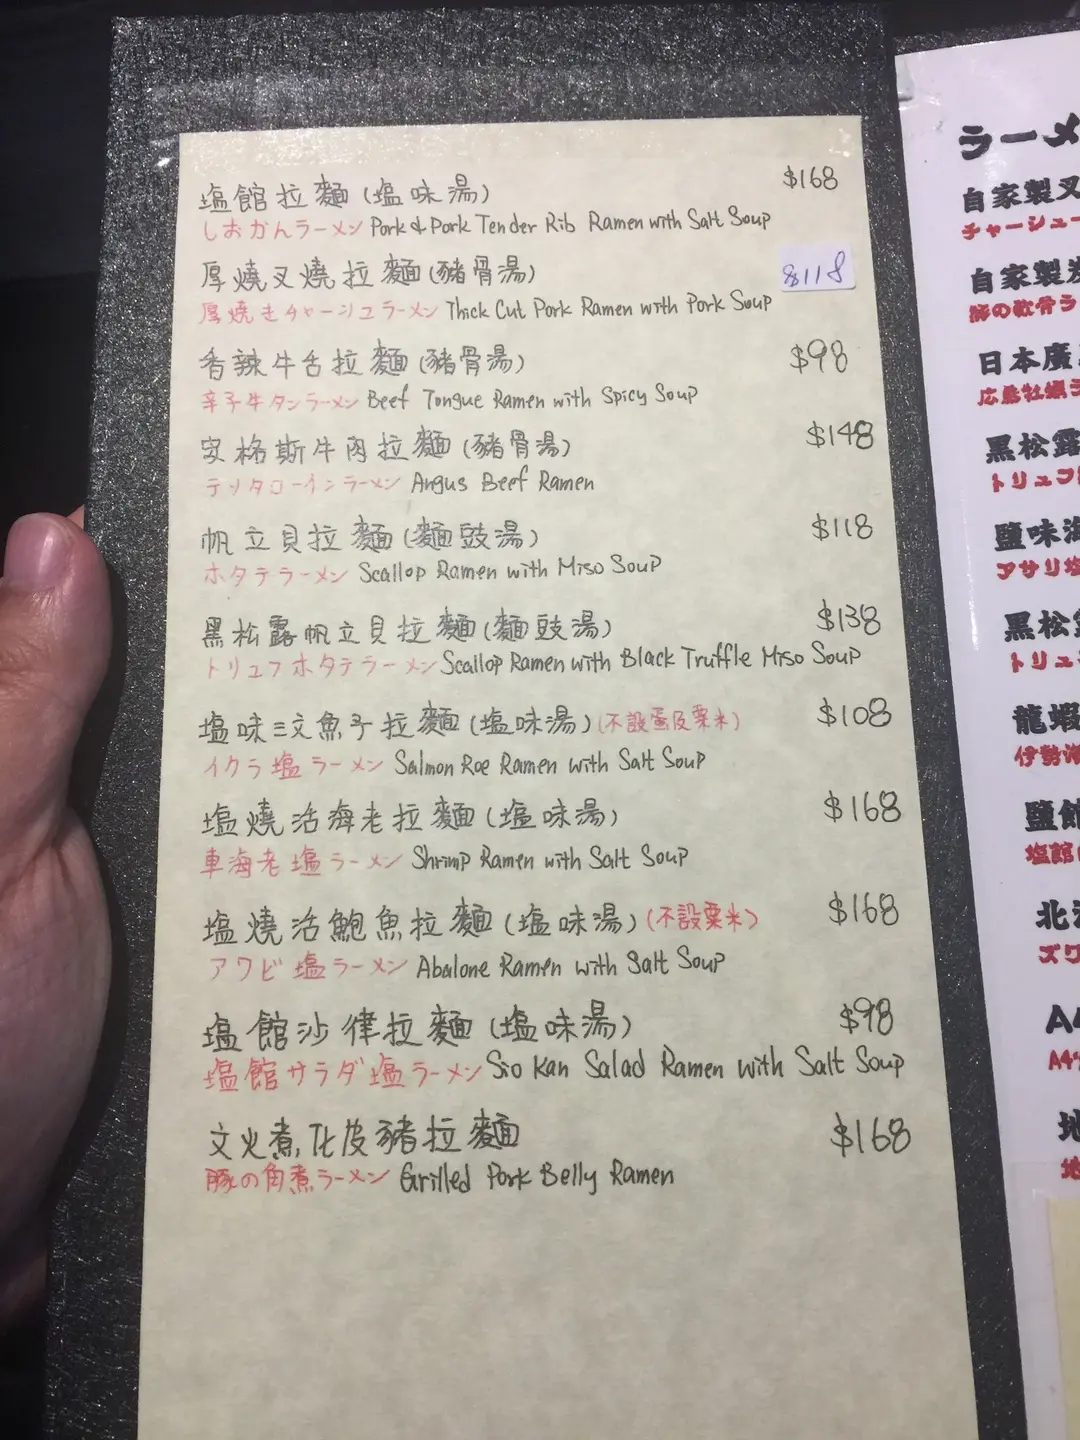 塩館拉麵(塩味湯) $168
しおかんラーメン Pork & Pork Tender Rib Ramen with Salt Soup
厚燒叉燒拉麵(豬骨湯) $118
厚焼きチャーシュラーメン Thick Cut Pork Ramen with Pork Soup
香辣牛舌拉麵(豬骨湯) $98
辛子牛タンラーメン Beef Tongue Ramen with Spicy Soup
安格斯牛肉拉麵(豬骨湯) $148
ラーメン Angus Beef Ramen
帆立貝拉麵(麵豉湯) $118
ホタテラーメン Scallop Ramen with Miso Soup
黑松露帆立貝拉麵(麵豉湯) $138
トリュフホタテラーメン Scallop Ramen with Black Truffle Miso Soup
塩味三文魚子拉麵(塩味湯)(不設蛋及粟米) $108
イクラ塩ラーメン Salmon Roe Ramen with Salt Soup
塩燒活海老拉麵(塩味湯) $168
車海老塩ラーメン Shrimp Ramen with Salt Soup
塩燒活鮑魚拉麵(塩味湯)(不設粟米) $168
アワビ塩ラーメン Abalone Ramen with Salt Soup
塩館沙律拉麵(塩味湯) $98
塩館サラダ塩ラーメン Sio Kan Salad Ramen with Salt Soup
文火煮化皮豬拉麵 $168
豚の角煮ラーメン Grilled Pork Belly Ramen
ラーメ
自家製叉
チャーシュー
自家製
豚の軟骨ラ
日本廣
広島牡蠣ラ
黑松露
トリュフ
鹽味海
アサリ塩
黑松露
トリュ
龍蝦
伊勢海
鹽館
塩館
北海
ズワ
A4
A4
地
地